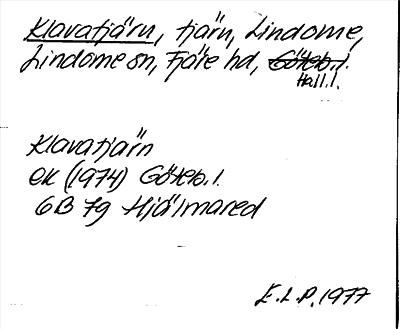 Klavatjärn, tjärn, Lindome,
Lindome sn, Fjäre hd, Göteb.l.
Hall.l.
Klavatjärn
ek (1974) Göteb.l.
6B 7g Hjälmared
E.L.P. 1977